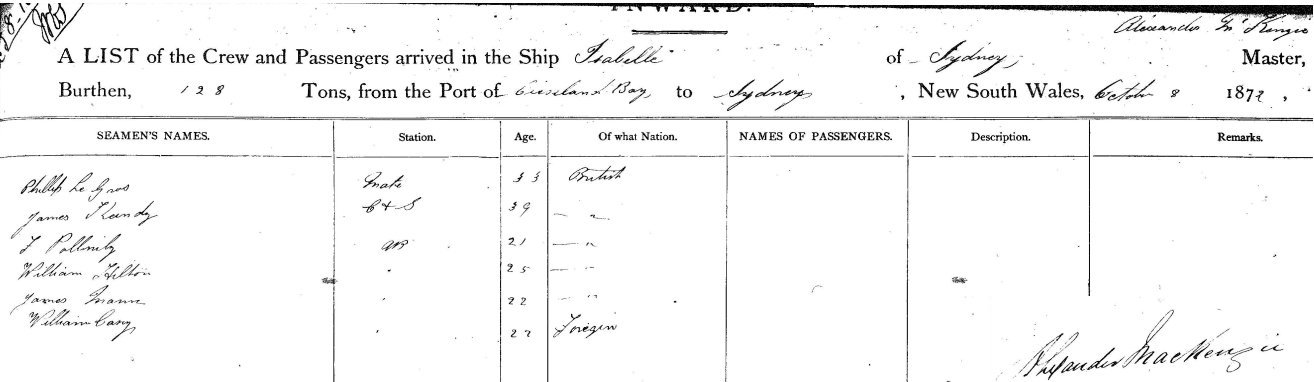 INWARD.
Alexander McKenzie
A LIST of the Crew and Passengers arrived in the Ship Isabelle of Sydney, Master,
Burthen, 128 Tons, from the Port of Bay to Sydney, New South Wales, October 8 1872,
SEAMEN'S NAMES. Station. Age. Of what Nation. NAMES OF PASSENGERS. Description. Remarks.
Phillip Le Gros Mate 33 British
James C & S 39 — "
F AB 21 — "
William Hilton " 25 — "
James Mann " 22 — "
William Casey " 22 Foregin
Alexander MacKenzie